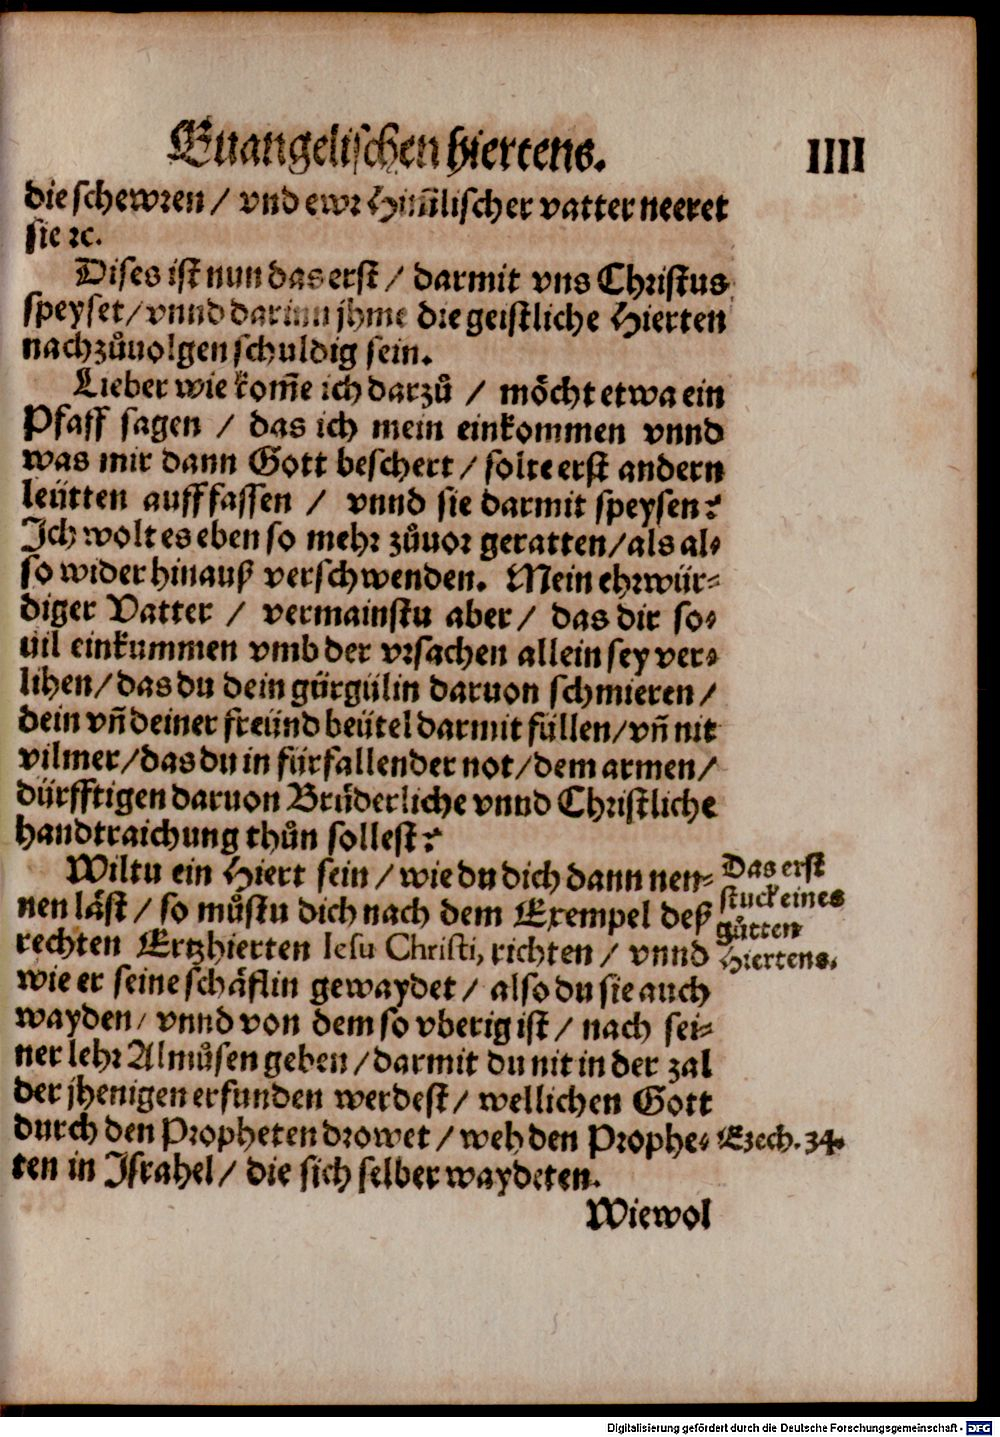 Euangelischen hiertens. IIII
die schewren / vnd ewr Him̃lischer vatter neeret
sie ꝛc.
Dises ist nun das erst / darmit vns Christus
speyset / vnnd darinn jhme die geistliche Hierten
nachzůuolgen schuldig sein.
Lieber wie kom̃e ich darzů / möcht etwa ein
Pfaff sagen / das ich mein einkommen vnnd
was mir dann Gott beschert / solte erst andern
leütten aufffassen / vnnd sie darmit speysen?
Ich wolt es eben so mehr zůuor geratten / als al⸗
so wider hinauß verschwenden. Mein ehrwür⸗
diger Vatter / vermainstu aber / das dir so⸗
uil einkummen vmb der vrsachen allein sey ver⸗
lihen / das du dein gürgülin daruon schmieren /
dein vñ deiner freünd beütel darmit füllen / vñ nit
vilmer / das du in fürfallender not / dem armen /
dürfftigen daruon Brůderliche vnnd Christliche
handtraichung thůn sollest?
Wiltu ein Hiert sein / wie du dich dann nen⸗
nen läst / so můstu dich nach dem Exempel deß
rechten Ertzhierten Iesu Christi, richten / vnnd
wie er seine schäflin gewaydet / also du sie auch
wayden / vnnd von dem so vberig ist / nach sei⸗
ner lehr Almůsen geben / darmit du nit in der zal
der jhenigen erfunden werdest / wellichen Gott
durch den Propheten drowet / weh den Prophe⸗
ten in Israhel / die sich selber waydeten.
Wiewol
Das erst
stuck eines
gůtten
Hiertens.
Ezech. 34.
Digitalisierung gefördert durch die Deutsche Forschungsgemeinschaft - DFG